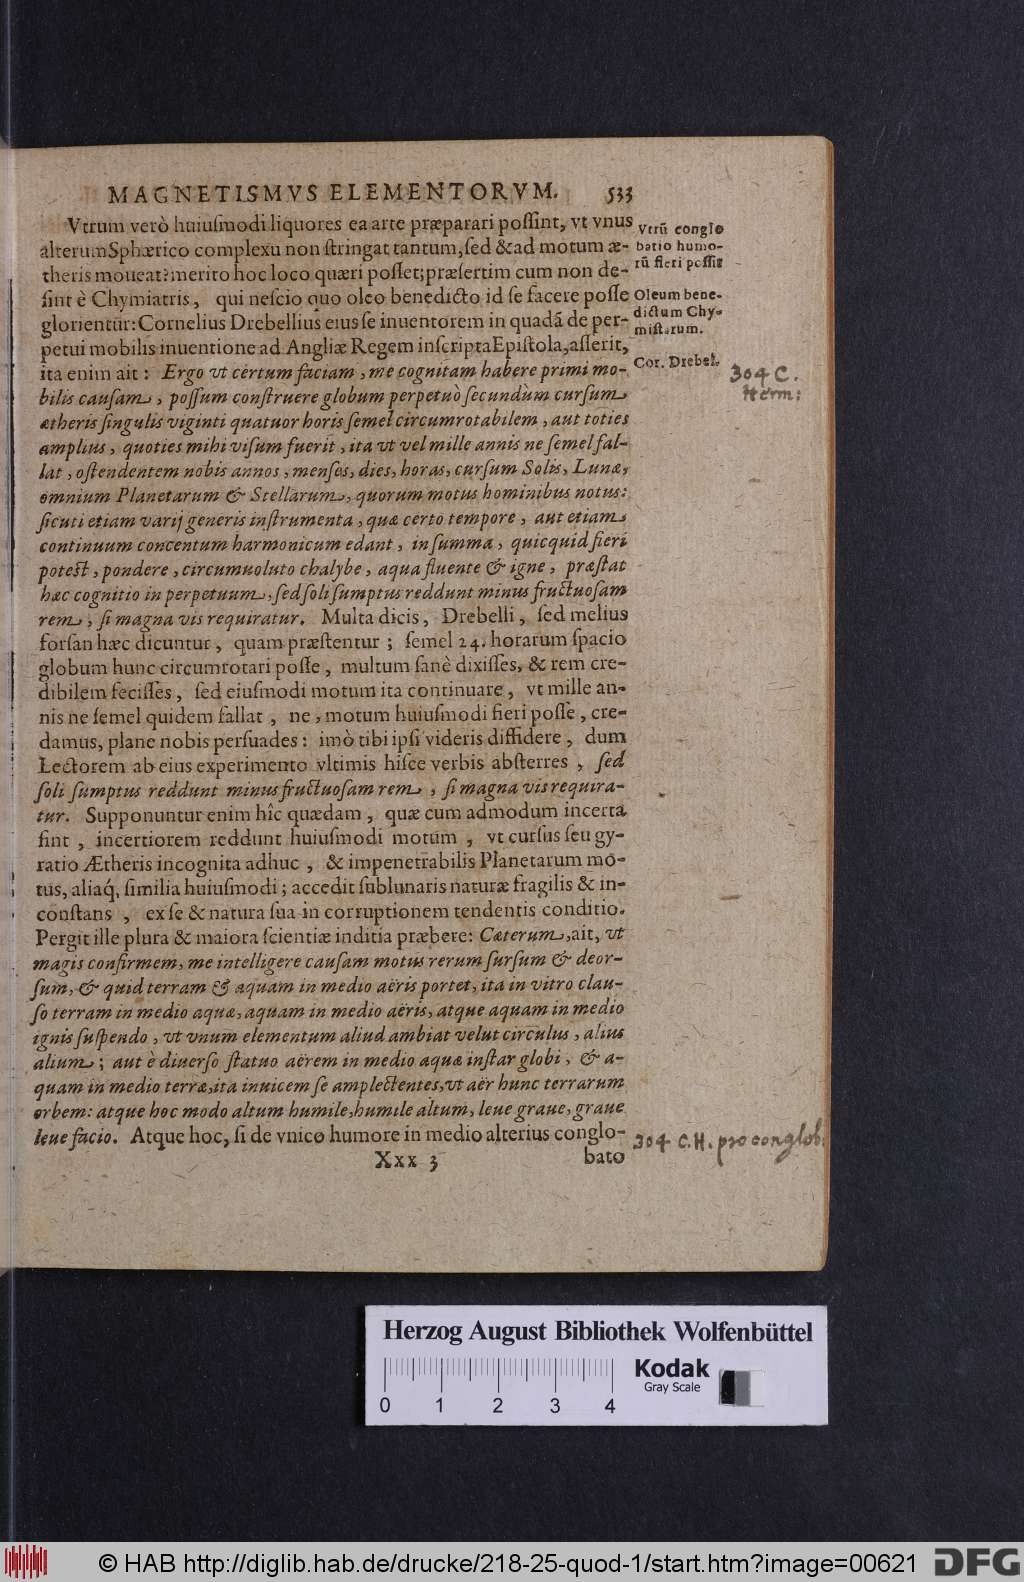 MAGNETISMVS ELEMENTORVM. 533
Vtrum verò huiuſmodi liquores ea arte præparari poſſint, vt vnus
alterum Sphærico complexu non ſtringat tantum, ſed & ad motum æ-
theris moueat? merito hoc loco quæri poſſet; præſertim cum non de-
ſint è Chymiatris, qui neſcio quo oleo benedicto id ſe facere poſſe
glorientur: Cornelius Drebellius eius ſe inuentorem in quadã de per-
petui mobilis inuentione ad Angliæ Regem inſcripta Epiſtola, aſſerit,
ita enim ait: Ergo vt certum faciam, me cognitam habere primi mo-
bilis cauſam, poſſum conſtruere globum perpetuò ſecundùm curſum
ætheris ſingulis viginti quatuor horis ſemel circumrotabilem, aut toties
amplius, quoties mihi viſum fuerit, ita vt vel mille annis ne ſemel fal-
lat, oſtendentem nobis annos, menſes, dies, horas, curſum Solis, Lunæ,
omnium Planetarum & Stellarum, quorum motus hominibus notus:
ſicuti etiam varij generis inſtrumenta, quæ certo tempore, aut etiam
continuum concentum harmonicum edant, in ſumma, quicquid fieri
potest, pondere, circumuoluto chalybe, aqua fluente & igne, præſtat
hæc cognitio in perpetuum, ſed ſoli ſumptus reddunt minus fructuoſam
rem, ſi magna vis requiratur. Multa dicis, Drebelli, ſed melius
forſan hæc dicuntur, quam præſtentur; ſemel 24. horarum ſpacio
globum hunc circumrotari poſſe, multum ſanè dixiſſes, & rem cre-
dibilem feciſſes, ſed eiuſmodi motum ita continuare, vt mille an-
nis ne ſemel quidem fallat, ne, motum huiuſmodi fieri poſſe, cre-
damus, plane nobis perſuades: imò tibi ipſi videris diffidere, dum
Lectorem ab eius experimento vltimis hiſce verbis abſterres, ſed
ſoli ſumptus reddunt minus fructuoſam rem, ſi magna vis requira-
tur. Supponuntur enim hîc quædam, quæ cum admodum incerta
ſint, incertiorem reddunt huiuſmodi motum, vt curſus ſeu gy-
ratio Ætheris incognita adhuc, & impenetrabilis Planetarum mo-
tus, aliaq́, ſimilia huiuſmodi; accedit ſublunaris naturæ fragilis & in-
conſtans, ex ſe & natura ſua in corruptionem tendentis conditio.
Pergit ille plura & maiora ſcientiæ inditia præbere: Cæterum, ait, vt
magis confirmem, me intelligere cauſam motus rerum ſurſum & deor-
ſum, & quid terram & aquam in medio aëris portet, ita in vitro clau-
ſo terram in medio aquæ, aquam in medio aëris, atque aquam in medio
ignis ſuſpendo, vt vnum elementum aliud ambiat velut circulus, alius
alium; aut è diuerſo ſtatuo aërem in medio aquæ inſtar globi, & a-
quam in medio terræ, ita inuicem ſe amplectentes, vt aër hunc terrarum
orbem: atque hoc modo altum humile, humile altum, leue graue, graue
leue facio. Atque hoc, ſi de vnico humore in medio alterius conglo-
Xxx 3 bato
Vtrũ conglo
batio humo-
rũ fieri poſſit
Oleum bene-
dictum Chy-
miſtarum.
Cor. Drebel.
304 C.
Herm:
304 C.H. pro conglob.
Herzog August Bibliothek Wolfenbüttel
Kodak
Gray Scale
0 1 2 3 4
© HAB http://diglib.hab.de/drucke/218-25-quod-1/start.htm?image=00621
DFG